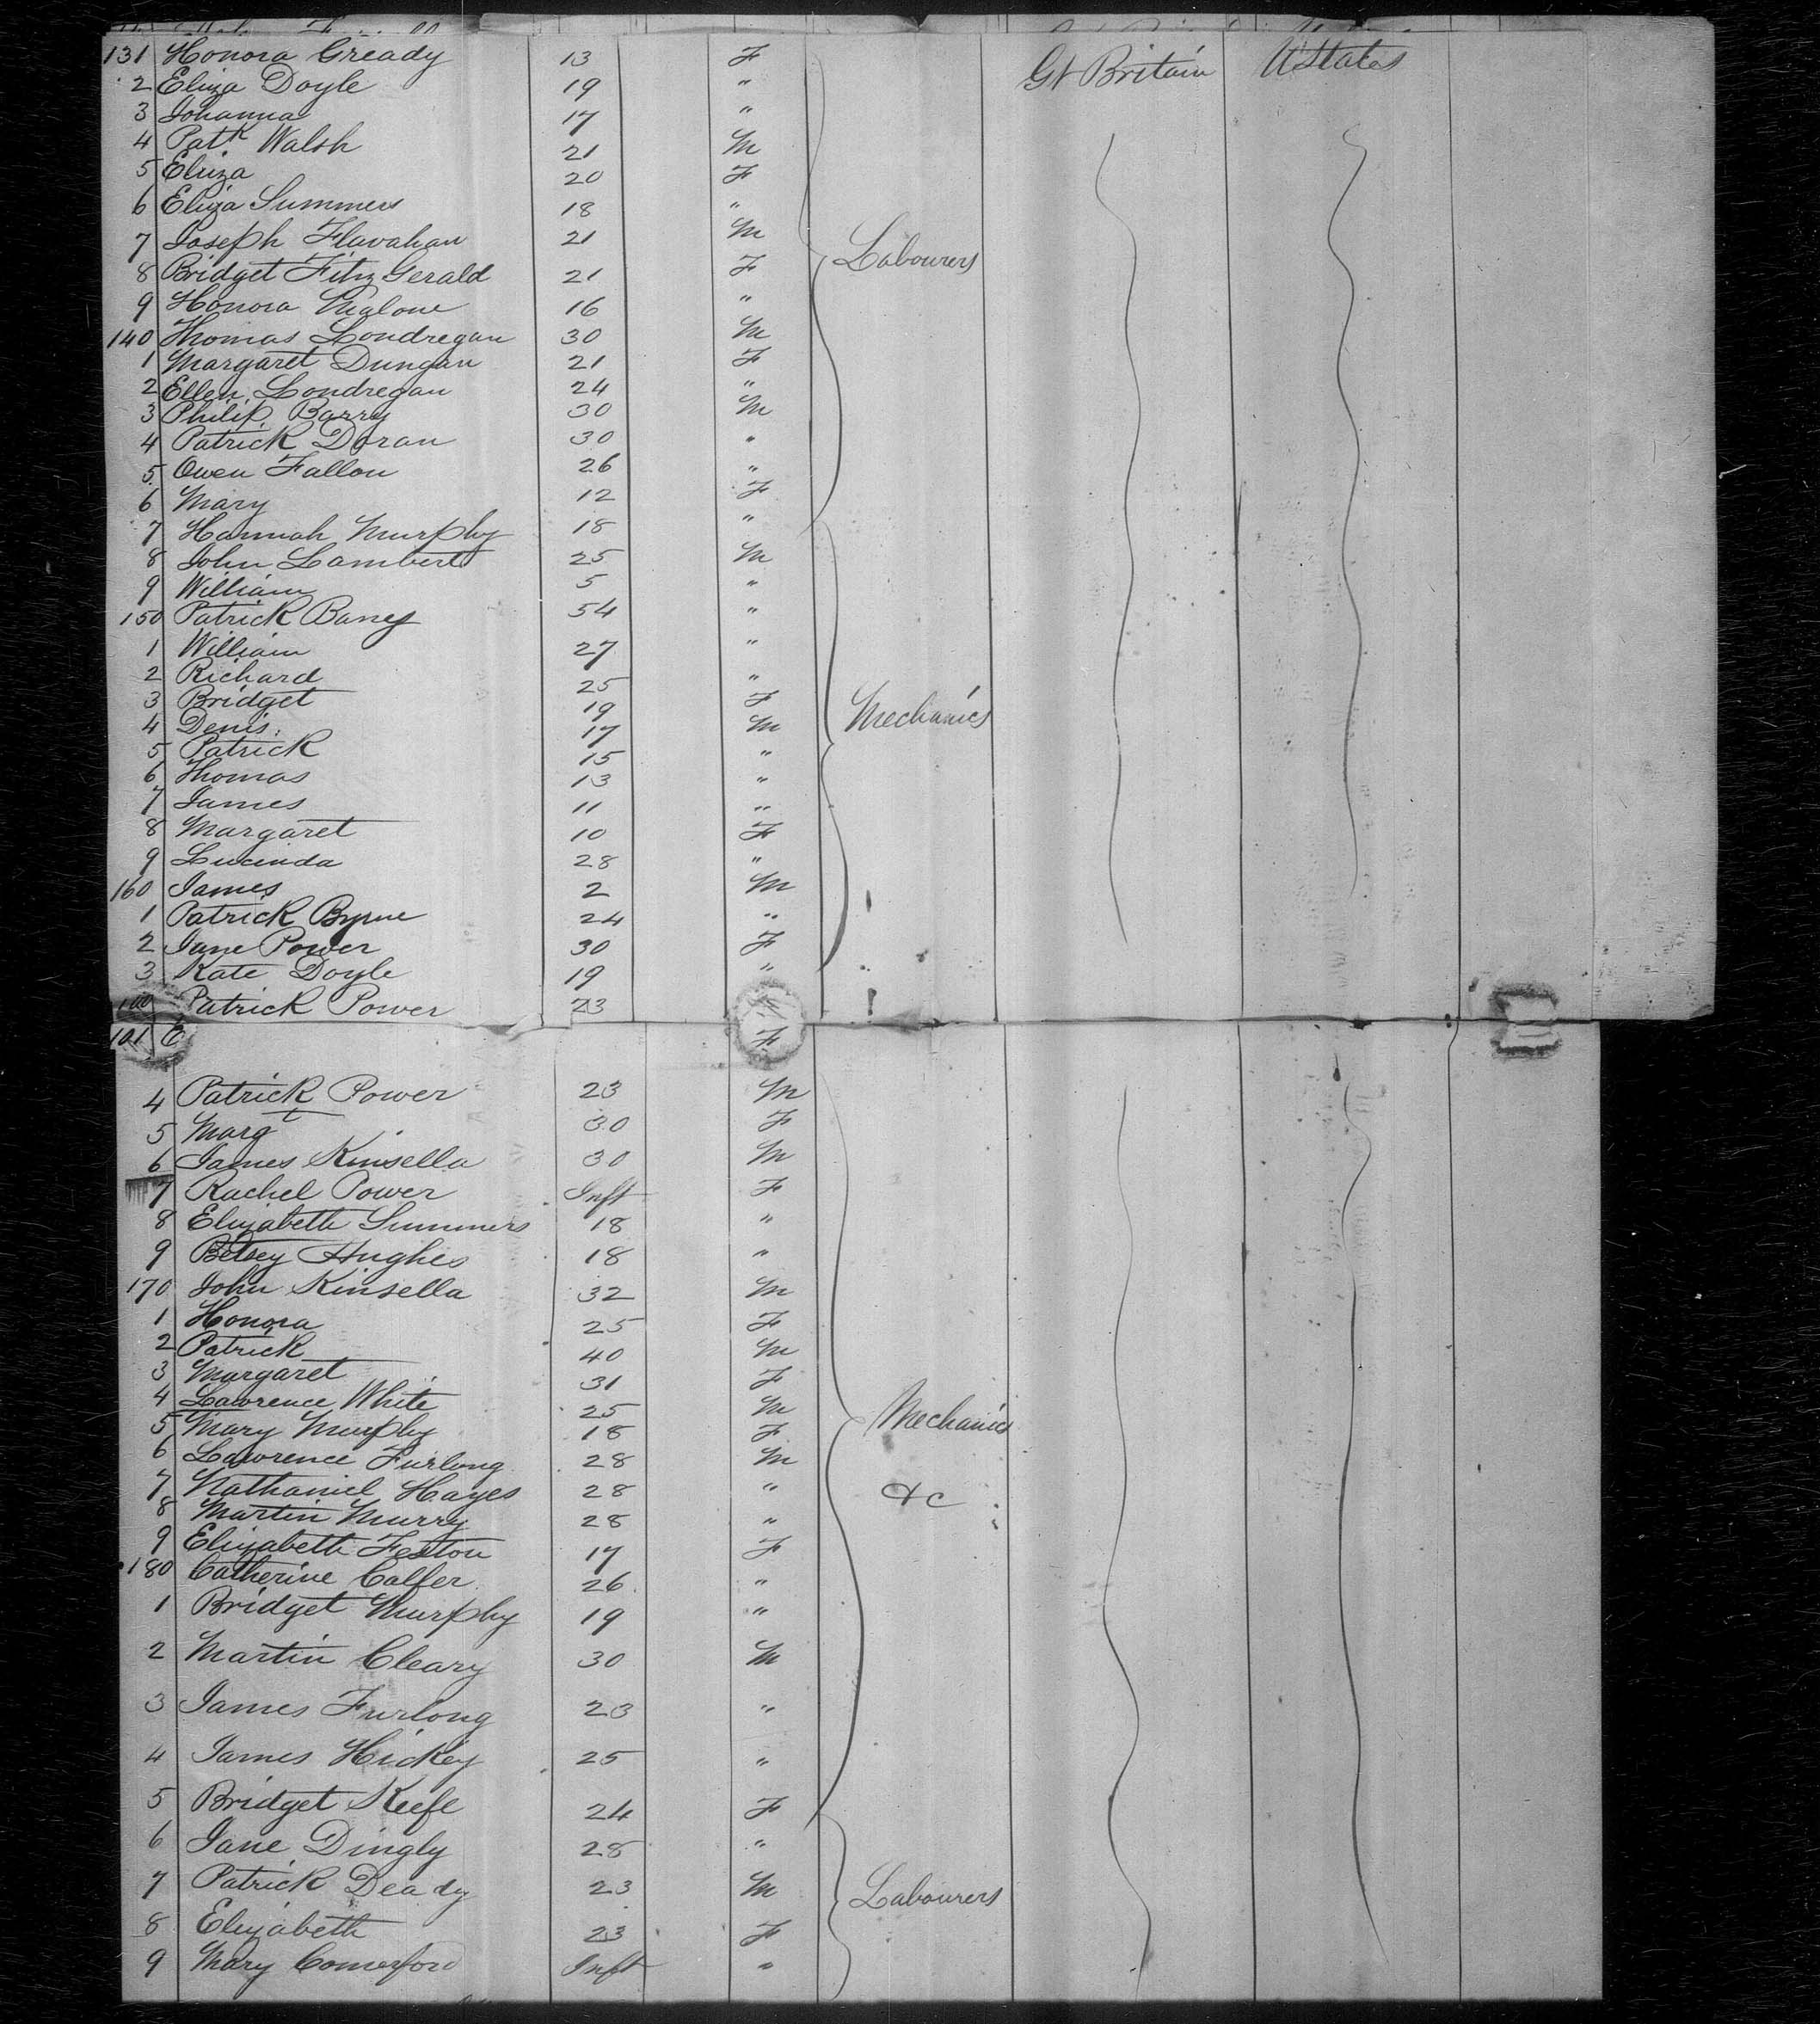 131 Honora Gready 13 F Gt Britain UStates
2 Eliza Doyle 19 "
3 Johanna 17 "
4 Patk Walsh 21 M
5 Eliza 20 F
6 Eliza Summers 18 "
7 Joseph Flavahan 21 M
8 Bridget FitzGerald 21 F Labourers
9 Honora Malone 16 "
140 Thomas Londregan 30 M
1 Margaret Dungan 21 F
2 Ellen Londregan 24 "
3 Philip Barry 30 M
4 Patrick Doran 30 "
5 Owen Fallon 26 "
6 Mary 12 F
7 Hannah Murphy 18 "
8 John Lambert 25 M
9 William 5 "
150 Patrick 54 "
1 William 27 "
2 Richard 25 "
3 Bridget 19 F Mechanics
4 Denis 17 M
5 Patrick 15 "
6 Thomas 13 "
7 James 11 "
8 Margaret 10 F
9 Lucinda 28 "
160 James 2 M
1 Patrick Byrne 24 "
2 Jane Power 30 F
3 Kate Doyle 19 "
Patrick Power 23
101 E F
4 Patrick Power 23 M
5 Margt 30 F
6 James Kinsella 30 M
7 Rachel Power Inft F
8 Elizabeth Summers 18 "
9 Betsey Hughes 18 "
170 John Kinsella 32 M
1 Honora 25 F
2 Patrick 40 M
3 Margaret 31 F
4 Lawrence White 25 M Mechanics
5 Mary Murphy 18 F
6 Lawrence Furlong 28 M
7 Nathaniel Hayes 28 " &c
8 Martin Murry 28 "
9 Elizabeth Feston 17 F
180 Catherine Calfer 26 "
1 Bridget Murphy 19 "
2 Martin Cleary 30 M
3 James Furlong 23 "
4 James Hickey 25 "
5 Bridget Keefe 24 F
6 Jane Dingly 28 "
7 Patrick Deady 23 M Labourers
8 Elizabeth 23 F
9 Mary Comerford Inft "